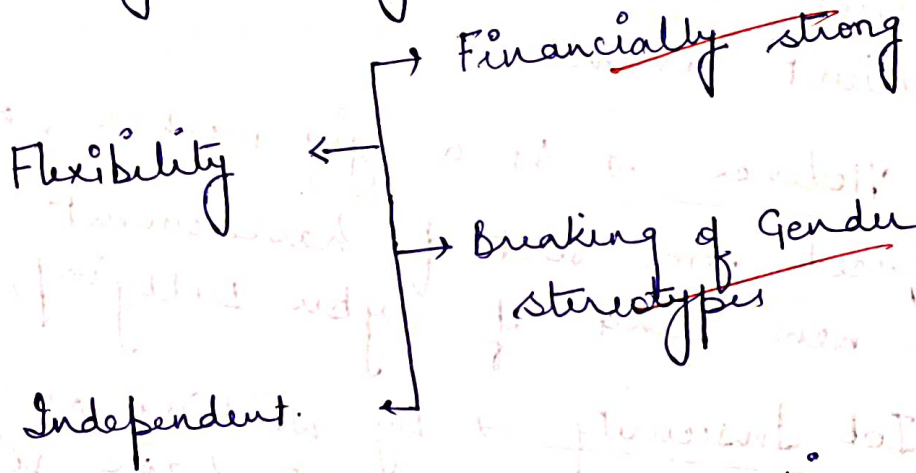 Financially strong
Flexibility
Breaking of Gender
stereotypes
Independent.